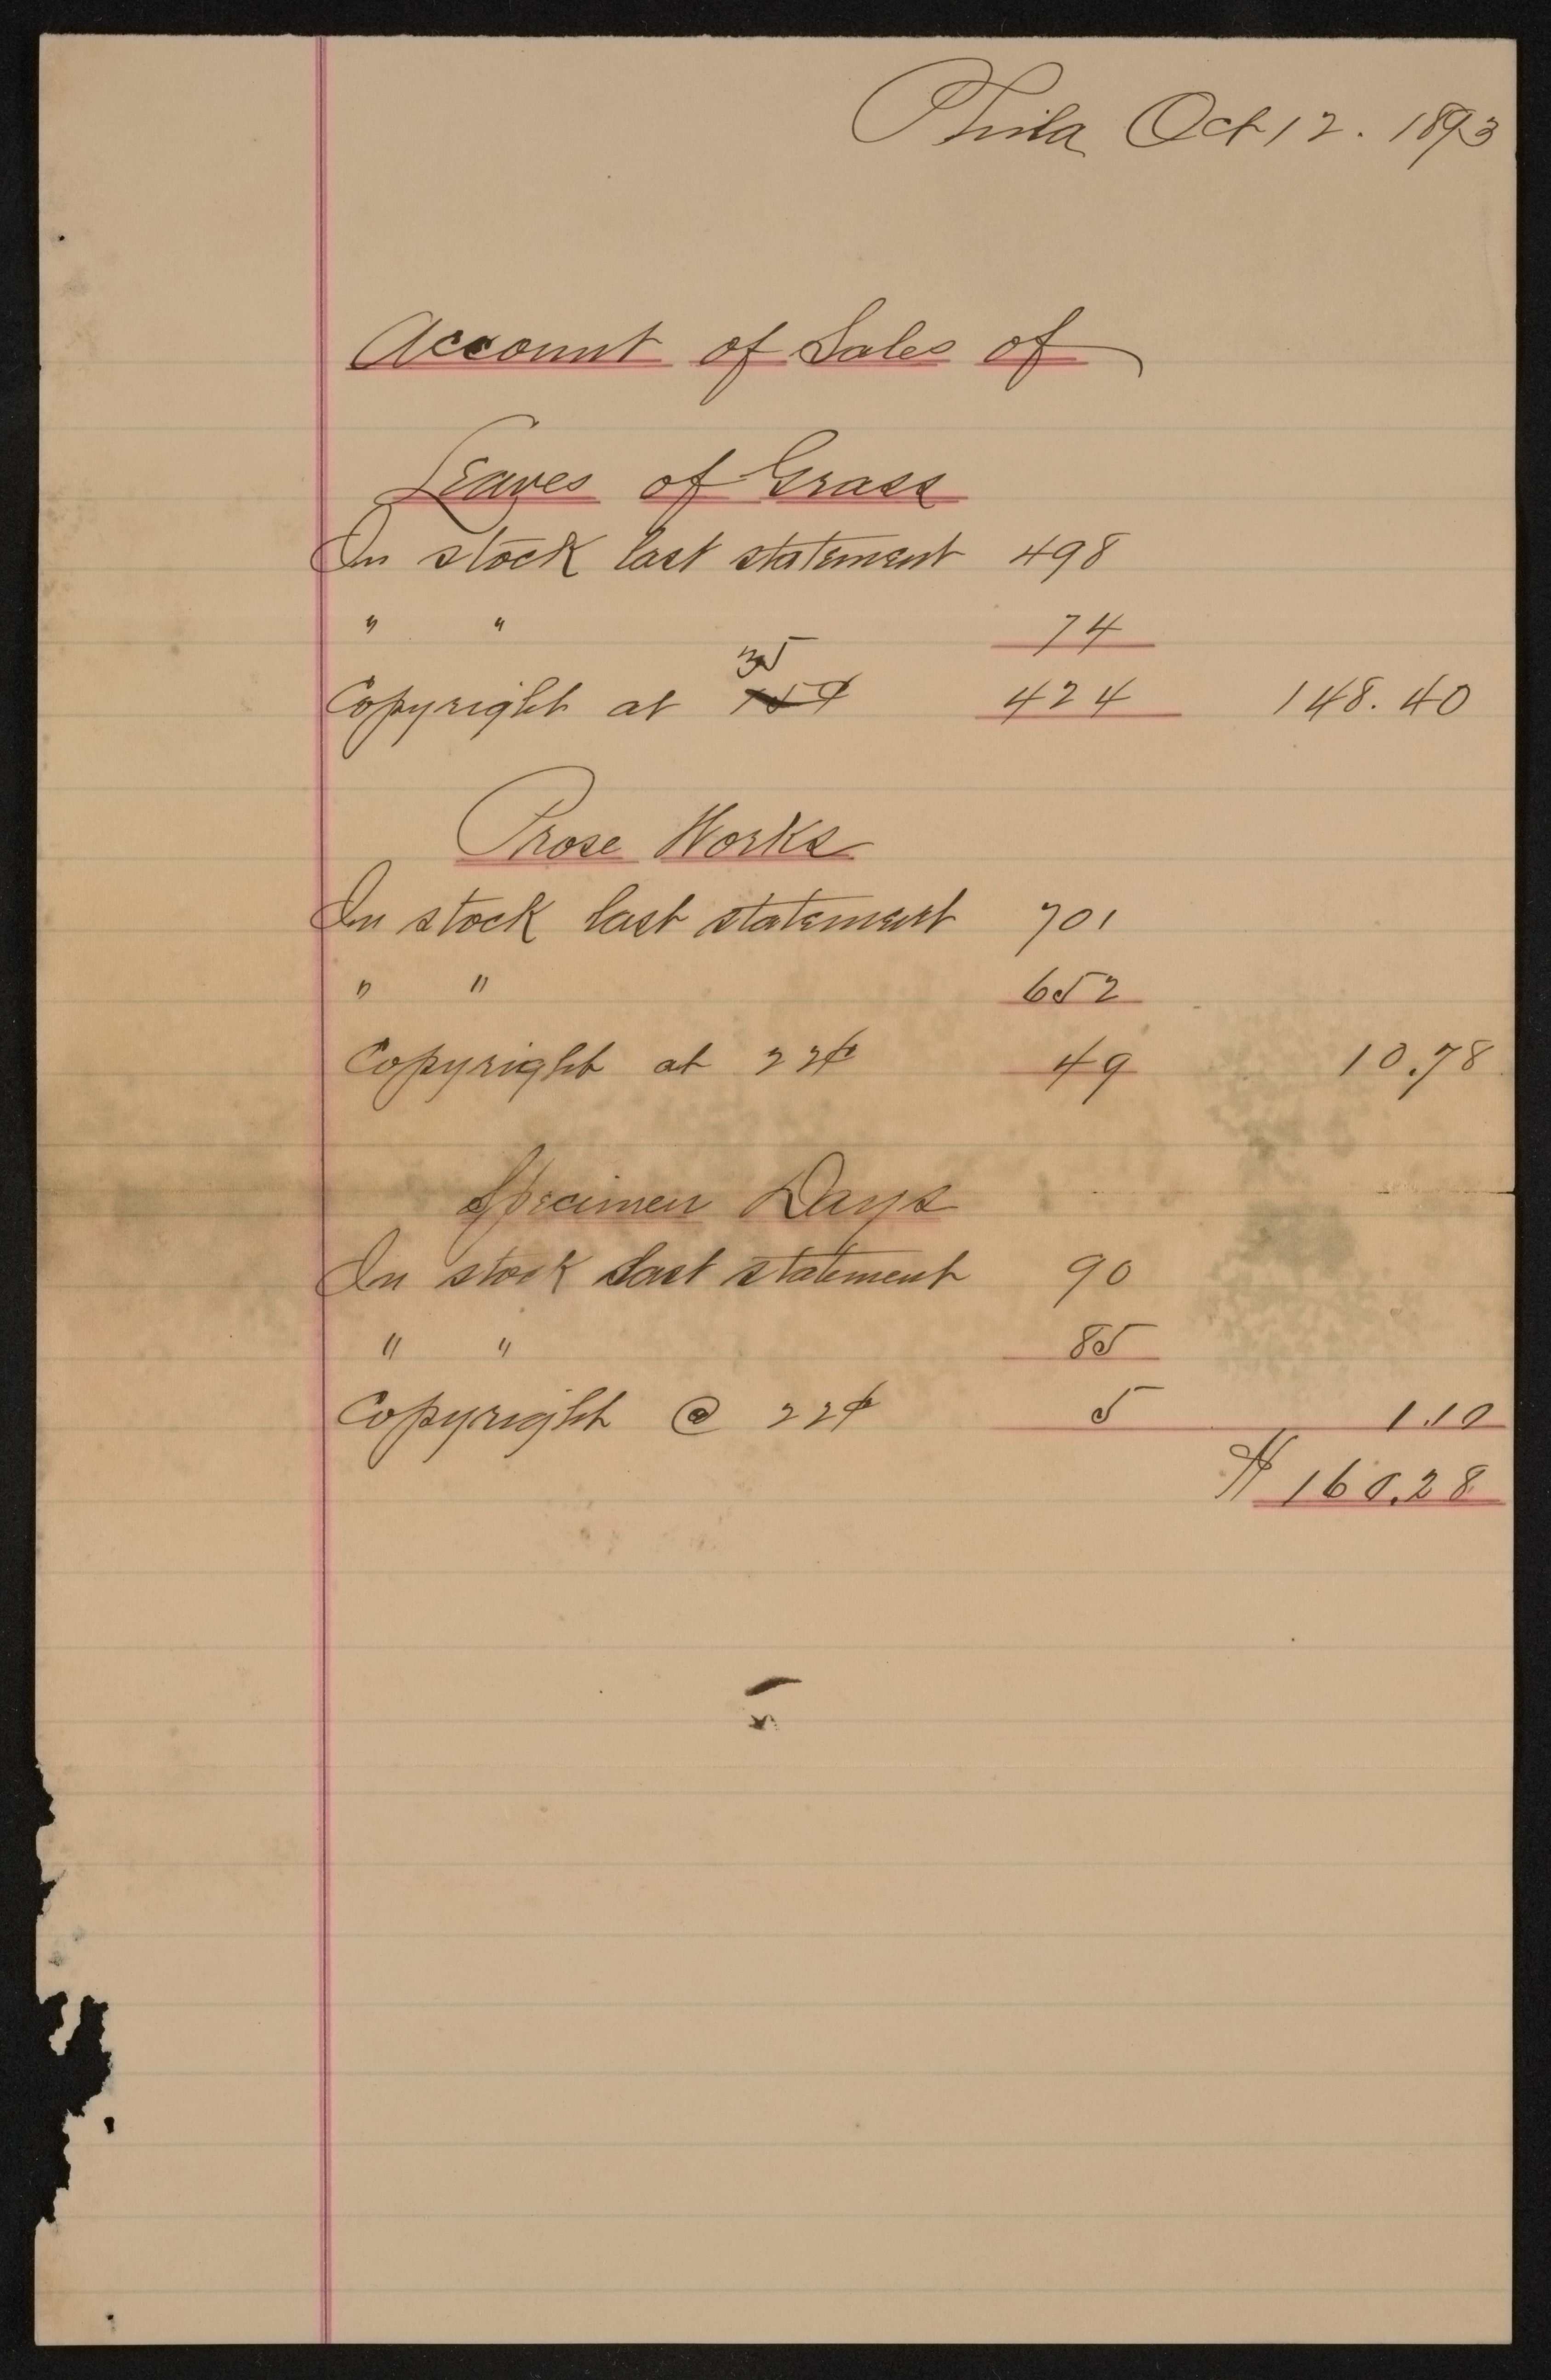 Phila Oct 12. 1893
Account of Sales of
Leaves of Grass
In stock last statement 498
" " 74
35
Copyright at 15¢ 424 148.40
Prose Works
In stock last statement 701
" " 652
Copyright at 22¢ 49 10.78
Specimen Days
In stock last statement 90
" " 85
Copyright @ 22¢ 5 1.10
$160.28